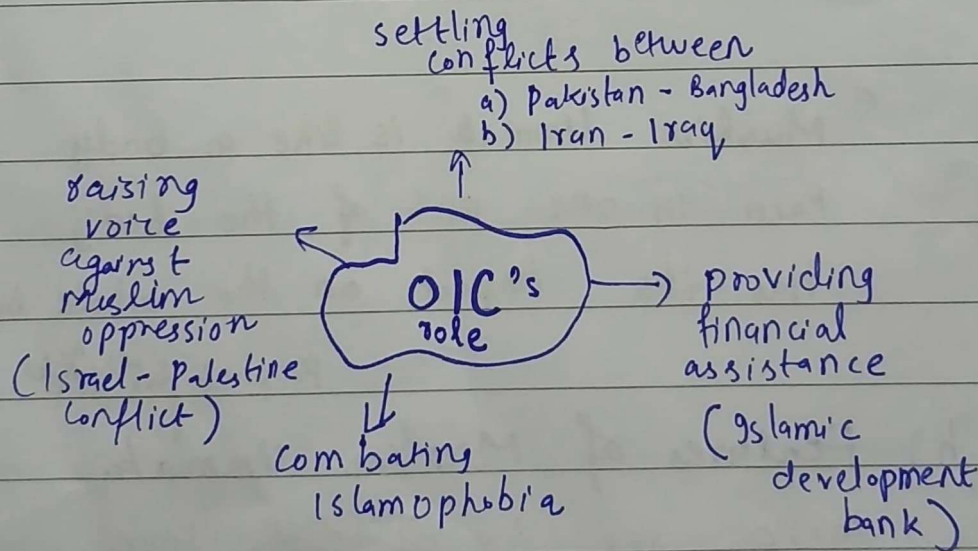 settling
conflicts between
a) Pakistan - Bangladesh
b) Iran - Iraq
raising
voice
against
Muslim
oppression
(Israel - Palestine
conflict)
OIC's
role
providing
financial
assistance
(Islamic
development
bank)
combating
Islamophobia